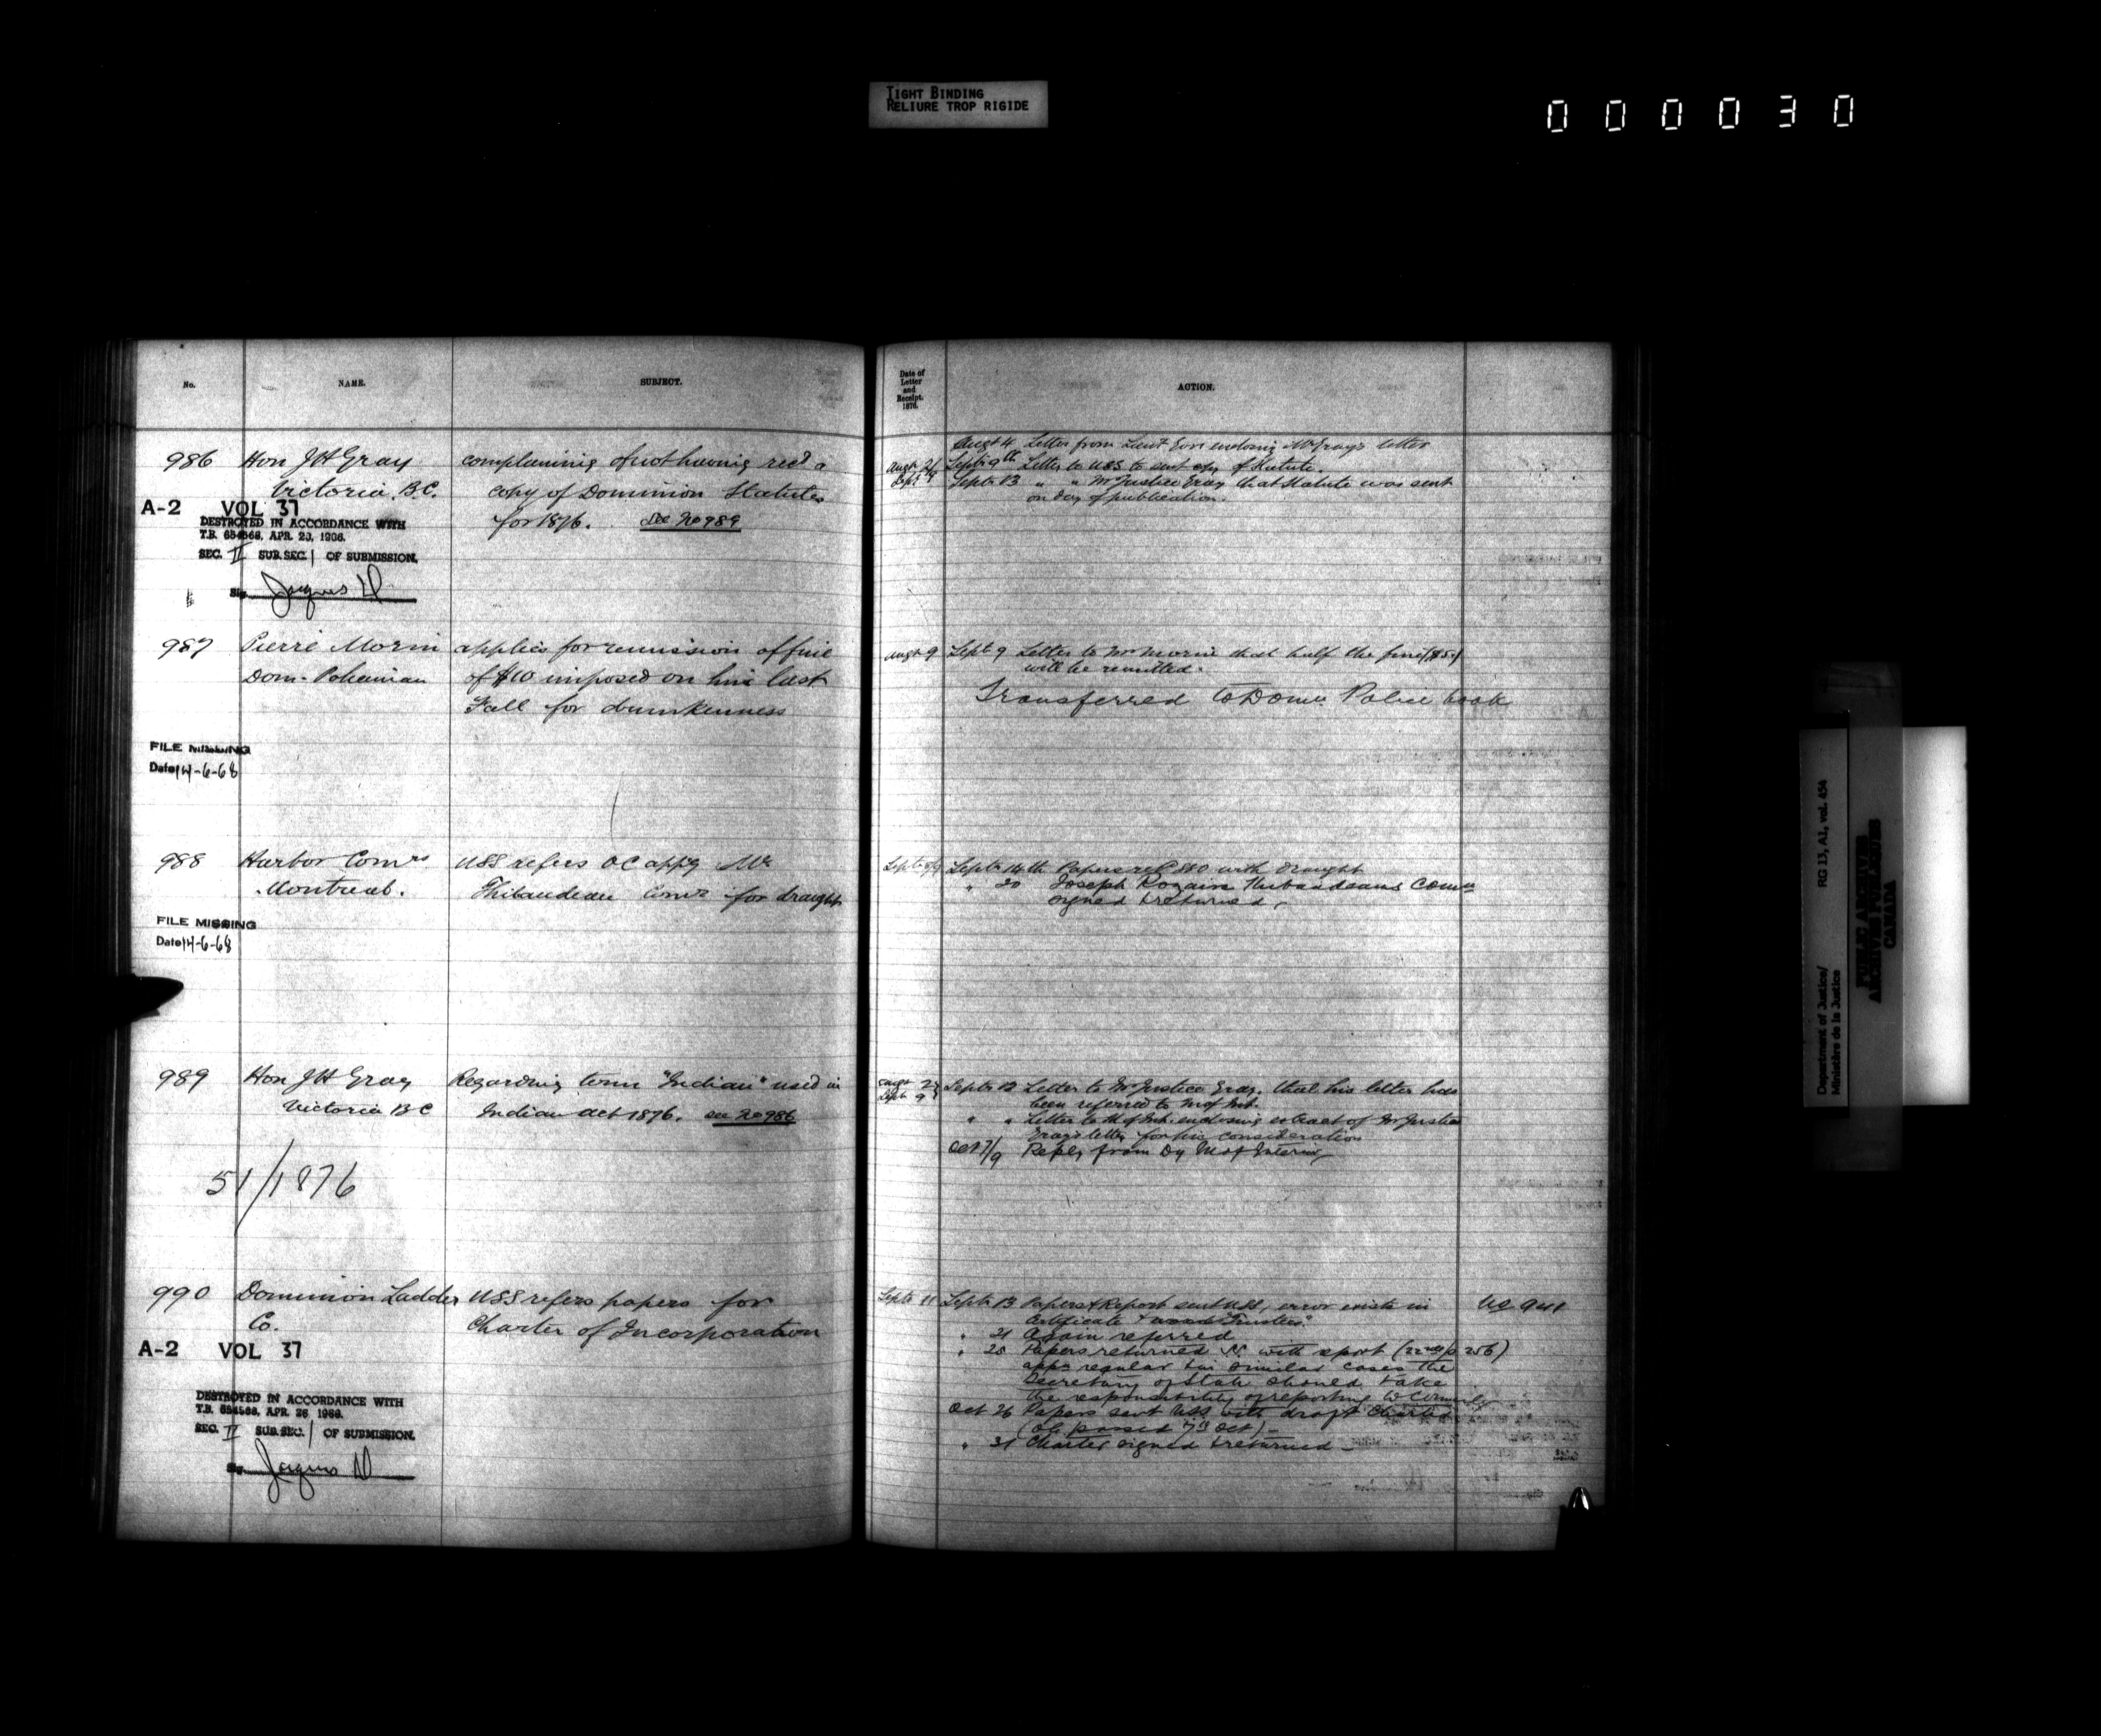 TIGHT BINDING
RELIURE TROP RIGIDE
000030
No.
NAME.
SUBJECT.
986
Hon J H Gray
Victoria, B.C.
complaining of not having rec'd a
copy of Dominion Statutes
for 1876. See No 989
A-2 VOL 37
DESTROYED IN ACCORDANCE WITH
T.B. 654568, APR. 26, 1966.
SEC. II SUB.SEC. 1 OF SUBMISSION.
Sig. Jacques
987
Pierre Morin
Dom. Policeman
applies for remission of fine
of $10 imposed on him last
Fall for drunkenness
FILE MISSING
Date 14-6-68
988
Harbor Comrs
Montreal.
USS refers OC appg Mr
Thibaudeau Comr for draught
FILE MISSING
Date 14-6-68
989
Hon J H Gray
Victoria B C
Regarding term "Indian" used in
Indian Act 1876. see No 986
51/1876
990
Dominion Ladder
Co.
USS refers papers for
Charter of Incorporation
A-2 VOL 37
DESTROYED IN ACCORDANCE WITH
T.B. 654568, APR. 26, 1966.
SEC. II SUB.SEC. 1 OF SUBMISSION.
Sig. Jacques
Date of
Letter
and
Receipt.
1876.
ACTION.
Augt 4 Letter from Lieut Gov enclosing Mr Gray's letter
Septr 9th Letter to USS to send copy of Statute.
Septr 13 " " Mr Justice Gray that Statute was sent
on day of publication.
Augt 9 Septr 9 Letter to Mr Morin that half the fine ($5.)
will be remitted.
Transferred to Domn Police book
Septr 14th Papers ret'd with draught
" 20 Joseph Rozaire Thibaudeaus Comn
signed & returned
Augt 29
Septr 9
Septr 12 Letter to Mr Justice Gray, that his letter has
been referred to M of Int.
" " Letter to M of Int. enclosing extract of Mr Justice
Gray's letter for his consideration
Oct 7/9 Reply from Dy M of Interior
Septr 11 Septr 13 Papers & Report sent USS, error exists in
Certificate & words "Trustees".
" 21 Again referred
" 28 Papers returned with report (p 256)
appn regular & in similar cases the
Secretary of State should take
the responsibility of reporting to Council
Oct 26 Papers sent USS with draft Charter
(OC passed 7th Oct)
" 31 Charter signed & returned
Department of Justice/
Ministère de la Justice
RG 13, A1, vol. 454
PUBLIC ARCHIVES
ARCHIVES PUBLIQUES
CANADA